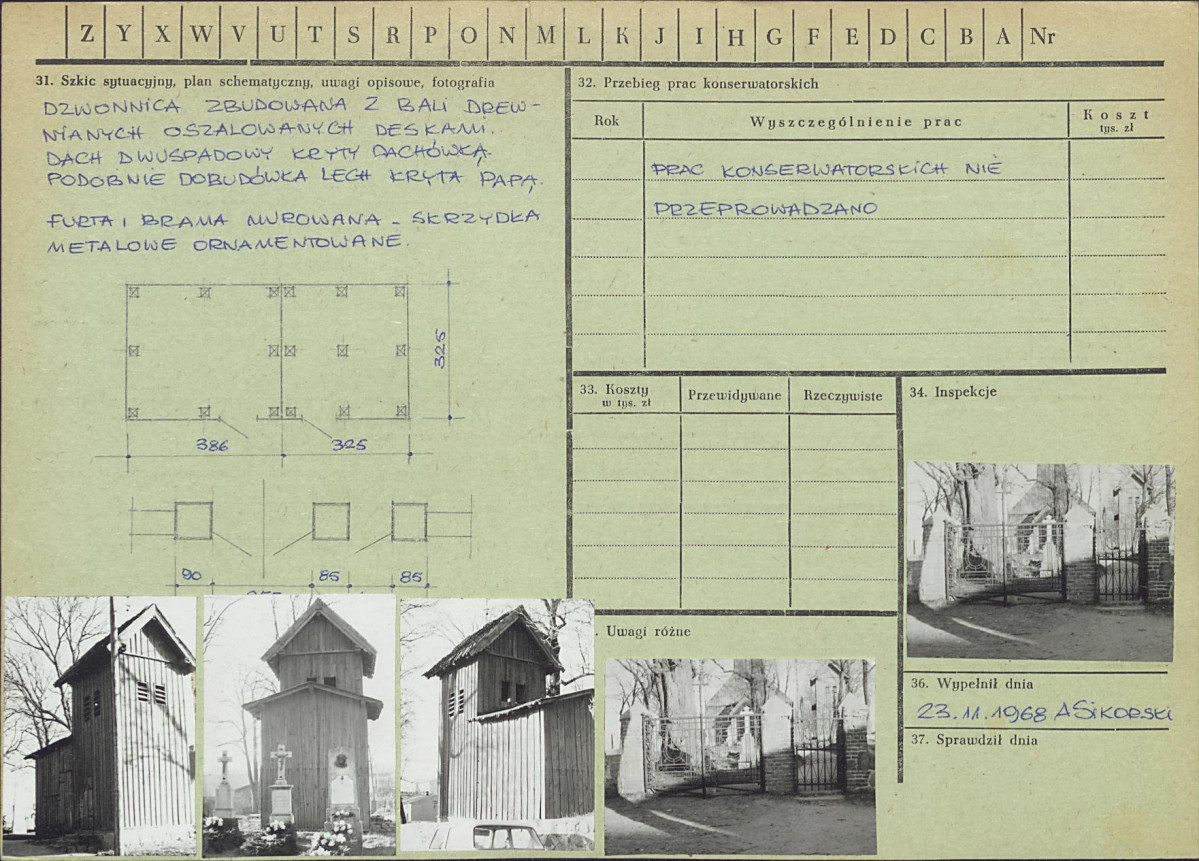 Z Y X W V U T S R P O N M L K J I H G F E D C B A Nr
31. Szkic sytuacyjny, plan schematyczny, uwagi opisowe, fotografia
DZWONNICA ZBUDOWANA Z BALI DREW-
NIANYCH OSZALOWANYCH DESKAMI.
DACH DWUSPADOWY KRYTY DACHÓWKĄ.
PODOBNIE DOBUDÓWKA LECH KRYTA PAPĄ.
FURTA I BRAMA MUROWANA - SKRZYDŁA
METALOWE ORNAMENTOWANE.
326
386 325
90 85 85
32. Przebieg prac konserwatorskich
Rok Wyszczególnienie prac Koszt
tys. zł
PRAC KONSERWATORSKICH NIE
PRZEPROWADZANO
33. Koszty
w tys. zł
Przewidywane Rzeczywiste
34. Inspekcje
. Uwagi różne
36. Wypełnił dnia
23.11.1968 ASIKORSKI
37. Sprawdził dnia